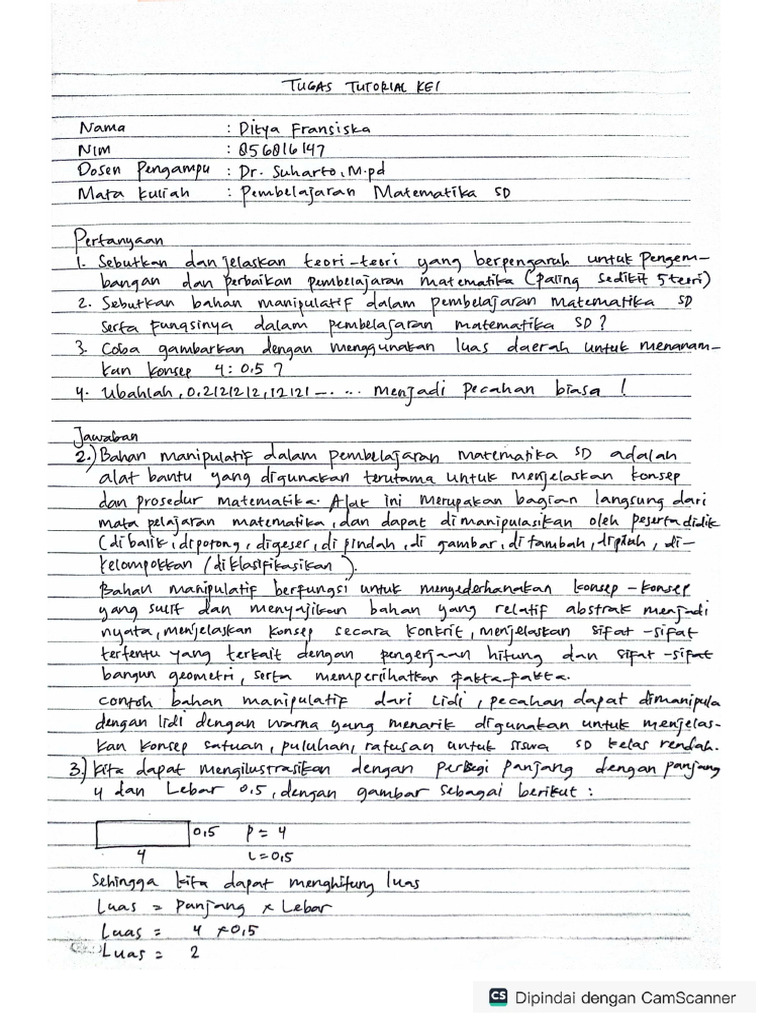 TUGAS TUTORIAL KE 1
Nama : Ditya Fransiska
NIM : 856816147
Dosen Pengampu : Dr. Suharto, M.pd
Mata kuliah : Pembelajaran Matematika SD
Pertanyaan
1. Sebutkan dan jelaskan teori-teori yang berpengaruh untuk Pengem-
bangan dan perbaikan pembelajaran matematika (Paling sedikit 5 teori)
2. Sebutkan bahan manipulatif dalam pembelajaran matematika SD
serta fungsinya dalam pembelajaran matematika SD?
3. Coba gambarkan dengan menggunakan luas daerah untuk menanam-
kan konsep 4 : 0.5 ?
4. Ubahlah, 0.2121212, 12121 ---.... menjadi pecahan biasa !
Jawaban
2.) Bahan manipulatif dalam pembelajaran matematika SD adalah
alat bantu yang digunakan terutama untuk menjelaskan konsep
dan prosedur matematika. Alat ini merupakan bagian langsung dari
mata pelajaran matematika, dan dapat dimanipulasikan oleh peserta didik
(di balik, dipotong, digeser, di pindah, di gambar, di tambah, dipilah, di-
kelompokkan / diklasifikasikan).
Bahan manipulatif berfungsi untuk menyederhanakan konsep-konsep
yang sulit dan menyajikan bahan yang relatif abstrak menjadi
nyata, menjelaskan konsep secara konkrit, menjelaskan sifat-sifat
tertentu yang terkait dengan pengerjaan hitung dan sifat-sifat
bangun geometri, serta memperlihatkan fakta-fakta.
contoh bahan manipulatif dari lidi, pecahan dapat dimanipula
dengan lidi dengan warna yang menarik digunakan untuk menjelas-
kan konsep satuan, puluhan, ratusan untuk siswa SD kelas rendah.
3.) Kita dapat mengilustrasikan dengan persegi panjang dengan panjang
4 dan Lebar 0.5, dengan gambar sebagai berikut :
0,5 P = 4
4 L = 0,5
Sehingga kita dapat menghitung luas
Luas = Panjang x Lebar
Luas = 4 x 0,5
Luas = 2
CS Dipindai dengan CamScanner